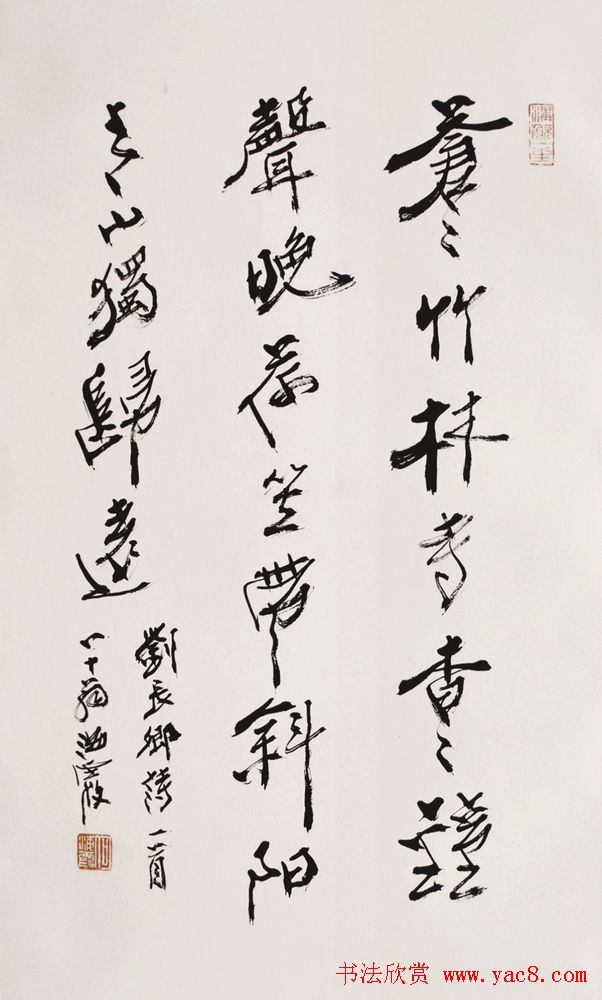 蒼〻竹林寺杳〻鐘
聲晚荷笠帶斜陽
青山獨歸遠
劉長卿詩一首
八十翁
书法欣赏 www.yac8.com